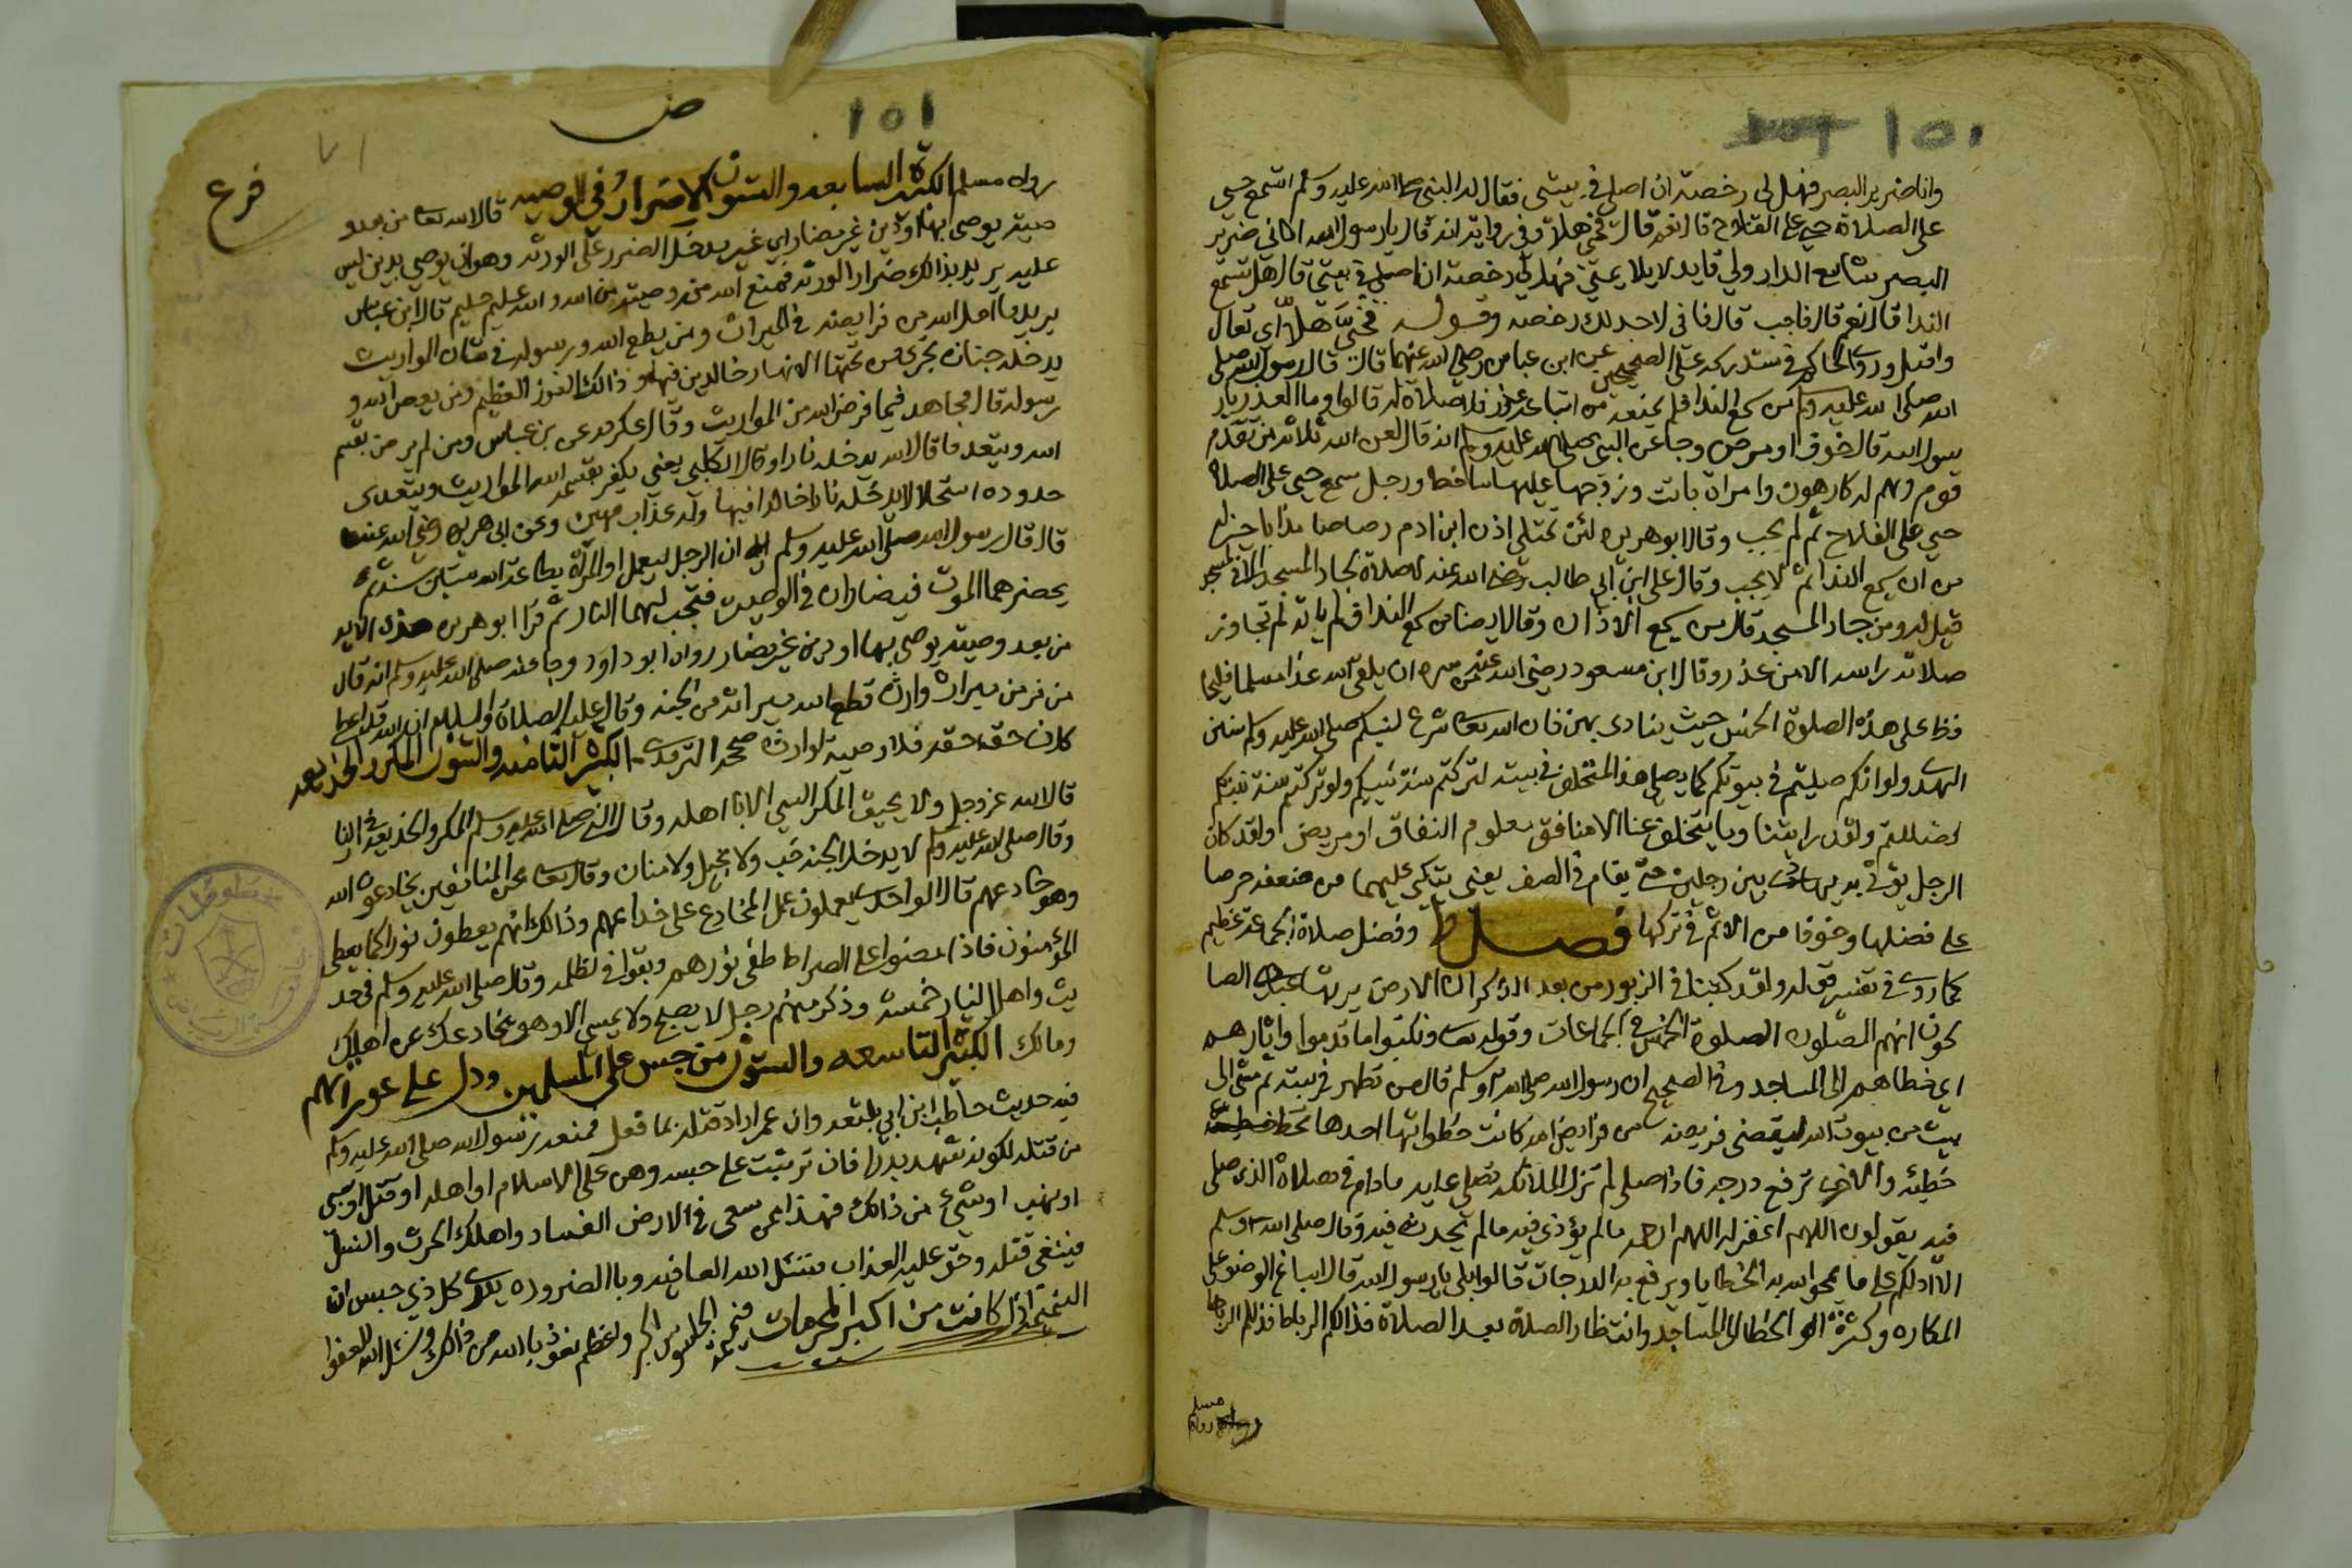 ١٥٠
وانا ضرير البصر فهل لي رخصة ان اصلي في بيتي فقال له النبي صلى الله عليه وسلم اتسمع حي
على الصلاة حي على الفلاح قال نعم قال فحي هلا وفي رواية انه قال يا رسول الله اني ضرير
البصر شاسع الدار ولي قايد لا يلايمني فهل لي رخصة ان اصلي في بيتي قال هل تسمع
الندا قال نعم قال فاجب قال فاني لا اجد لك رخصه وقوله فحي هلا اي تعال
واقبل وروى الحاكم في مستدركه على الصحيحين عن ابن عباس رضي الله عنهما قال قال رسول الله صلى
الله صلى الله عليه وسلم من سمع الندا فلم يمنعه من اتباعه عذر فلا صلاة له قالوا وما العذر يار
سول الله قال خوف او مرض وجا عن النبي صلى الله عليه وسلم انه قال لعن الله ثلاثه من تقدم
قوم وهم له كارهون وامراة باتت وزوجها عليها ساخط ورجل سمع حي على الصلاة
حي على الفلاح ثم لم يجب وقال ابو هريره لئن تمتلي اذن ابن ادم رصاصا مذابا خير له
من ان يسمع الندا ثم لا يجب وقال علي ابن ابي طالب رضي الله عنه لا صلاة لجار المسجد الا في المسجد
قيل له ومن جار المسجد قال من يسمع الاذان وقال ايضا من سمع الندا فلم ياته لم تجاوز
صلاته راسه الا من عذر وقال ابن مسعود رضي الله عنه من سره ان يلقى الله غدا مسلما فليحا
فظ على هذه الصلوة الخمس حيث ينادى بهن فان الله تعا شرع لنبيكم صلى الله عليه وسلم سنن
الهدى ولو انكم صليتم في بيوتكم كما يصلي هذا المتخلف في بيته لتركتم سنة نبيكم ولو تركتم سنة نبيكم
لضللتم ولقد رايتنا وما يتخلف عنا الا منافق معلوم النفاق او مريض ولقد كان
الرجل يوتى به يهادى بين رجلين حتى يقام في الصف يعني يتكي عليهما من ضعفه حرصا
على فضلها وخوفا من الاثم في تركها فصل وفضل صلاة الجماعة عظيم
كما روى في تفسير قوله ولقد كتبنا في الزبور من بعد الذكر ان الارض يرثها عبادي الصا
لحون انهم المصلون الصلوة الخمس في الجماعات وقوله تعا ونكتب ما قدموا واثارهم
اي خطاهم الى المساجد وفي الصحيح ان رسول الله صلى الله وسلم قال من تطهر في بيته ثم مشى الى
بيت من بيوت الله ليقضي فريضه من فرايض الله كانت خطواتها احدها تحط
خطيئه والاخرى ترفع درجه فاذا صلى لم تزل الملائكه تصلي عليه مادام في مصلاه الذي صلى
فيه يقولون اللهم اغفر له اللهم ارحمه مالم يؤذي فيه مالم يحدث فيه وقال صلى الله وسلم
الا ادلكم على ما يمحوا الله به الخطايا ويرفع به الدرجات قالوا بلى يا رسول الله قال اسباغ الوضوء على
المكاره وكثرة الخطا الى المساجد وانتظار الصلاة بعد الصلاة فذالكم الرباط فذلكم الرباط
رواه مسلم
١٥١
٧١
فرع
رواه مسلم الكبيرة السابعه والستون الاضرار في الوصيه قال الله تعا من بعد و
صية يوصى بها او دين غير مضار اي غير يدخل الضرر على الورثه وهو ان يوصي بدين ليس
عليه يريد بذالك ضرار الورثه فمنع الله منه وصية من الله والله عليم حليم قال ابن عباس
يريد ما احل الله من فرايضه في الميراث ومن يطع الله ورسوله في شان المواريث
يدخله جنات تجري من تحتها الانهار خالدين فيها وذالك الفوز العظيم ومن يعص الله و
رسوله قال مجاهد فيما فرض الله من المواريث وقال عكرمه عن بن عباس ومن لم يرض بقسم
الله ويتعد ما قال الله يدخله نارا وقال الكلبي يعني يكفر بقسمة الله المواريث ويتعدى
حدوده استحلالا يدخله نارا خالدا فيها وله عذاب مهين وعن ابي هريره رضي الله عنه
قال قال رسول الله صلى الله عليه وسلم ان الرجل ليعمل او المرأة بطاعة الله ستين سنة ثم
يحضرهما الموت فيضاران في الوصيه فتجب لهما النار ثم قرا ابو هريره هذه الايه
من بعد وصية يوصى بها او دين غير مضار رواه ابو داود وجا عنه صلى الله عليه وسلم انه قال
من فر من ميراث وارث قطع الله ميراثه من الجنه وقال عليه الصلاة والسلام ان الله قد اعطى
كل ذي حق حقه فلا وصية لوارث صححه الترمذى الكبيرة الثامنه والستون المكر والخديعه
قال الله عز وجل ولا يحيق المكر السيي الا باهله وقال النبي صلى الله عليه وسلم المكر والخديعة في النار
وقال صلى الله عليه وسلم لا يدخل الجنه خب ولا بخيل ولا منان وقال تعا عن المنافقين يخادعون الله
وهو خادعهم قال الواحدى يعاملون عمل المخادع على خداعهم وذالك انهم يعطون نورا كما يعطى
المؤمنون فاذا مضوا على الصراط طفى نورهم وبقوا في الظلمه وقال صلى الله عليه وسلم في حد
يث واهل النار خمسة وذكر منهم رجل لا يصبح ولا يمسي الا وهو يخادعك عن اهلك
ومالك الكبيرة التاسعه والستون من جس على المسلمين ودل على عوراتهم
فيه حديث حاطب ابن ابي بلتعه وان عمر اراد قتله بما فعل فمنعه رسول الله صلى الله عليه وسلم
من قتله لكونه شهد بدرا فان ترتبت على جسه وهن على الاسلام او اهله او قتل او سبى
او نهب او شيء من ذالك فهذا ممن سعى في الارض الفساد واهلك الحرث والنسل
فينبغي قتله وحق عليه العذاب فنسئل الله العافيه وبالضروره يدري كل ذي جس ان
النميمة اذا كانت من اكبر المحرمات فنميمة الجاسوس اكبر واعظم نعوذ بالله من ذالك ونسئل الله العفو